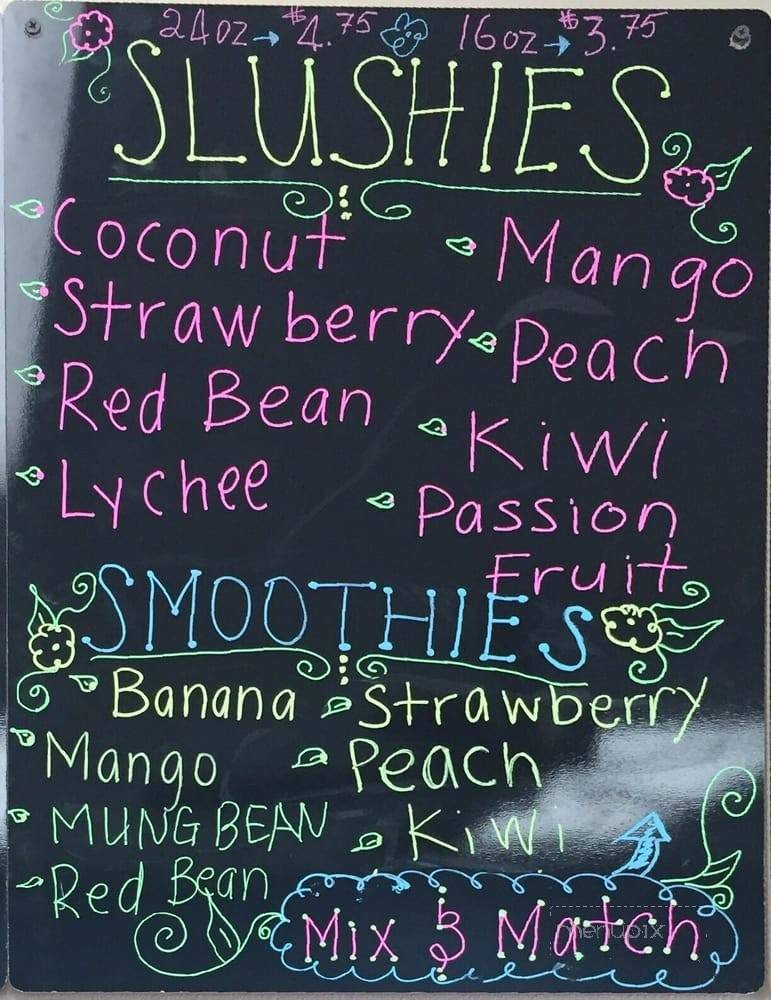 24oz → $4.75 16oz → $3.75
SLUSHIES
Coconut
Mango
Strawberry
Peach
Red Bean
Kiwi
Lychee
Passion
Fruit
SMOOTHIES
Banana
Strawberry
Mango
Peach
MUNG BEAN
Kiwi
Red Bean
Mix & Match
menupix